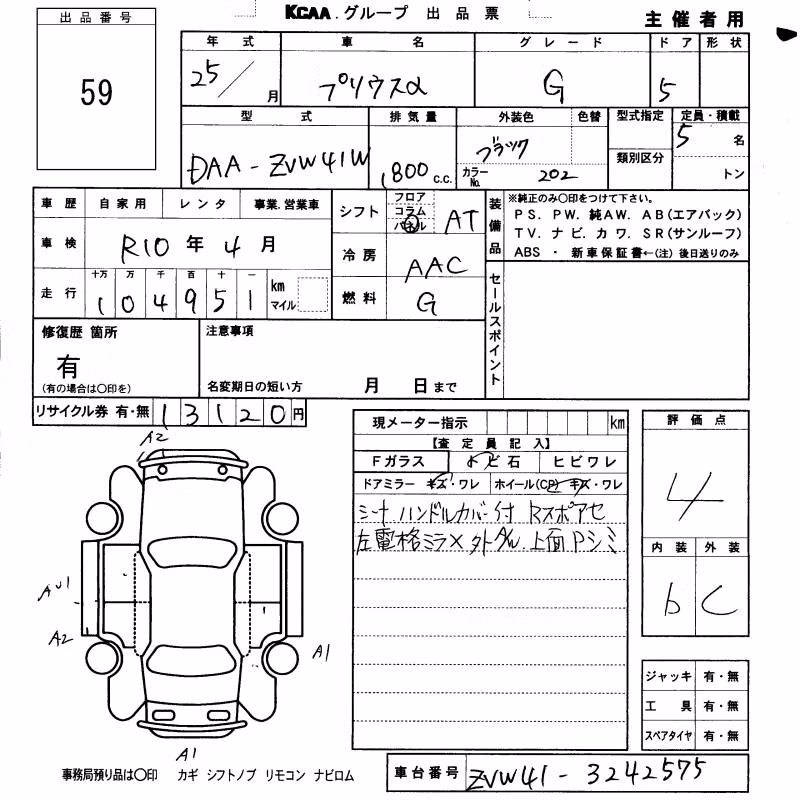 KCAA.グループ 出品票
主催者用
出品番号
59
年式 車名 グレード ドア 形状
25/ 月 プリウスα G 5
型式 排気量 外装色 色替 型式指定 定員・積載
DAA-ZVW41W 1800 c.c. ブラック カラーNo. 202 類別区分 5 名 トン
車歴 自家用 レンタ 事業.営業車
車検 R10 年 4 月
走行 十万 万 千 百 十 一 km マイル
1 0 4 9 5 1
シフト フロア コラム パネル AT
冷房 AAC
燃料 G
装備品
※純正のみ○印をつけて下さい。
PS. PW. 純AW. AB(エアバック)
TV. ナビ. カワ. SR(サンルーフ)
ABS ・ 新車保証書←(注) 後日送りのみ
セールスポイント
修復歴 箇所
有
(有の場合は○印を)
注意事項
名変期日の短い方 月 日まで
リサイクル券 有・無 13120円
現メーター指示 km
【査定員記入】
Fガラス とビ石 ヒビワレ
ドアミラー キズ・ワレ ホイール(CP) キズ・ワレ
シート ハンドルカバー付 Rスポアセ
左電格ミラ× 外 上面Pシミ
評価点
4
内装 外装
b C
ジャッキ 有・無
工具 有・無
スペアタイヤ 有・無
A2
A U1
A2
A1
A1
事務局預り品は○印 カギ シフトノブ リモコン ナビロム
車台番号 ZVW41-3242575